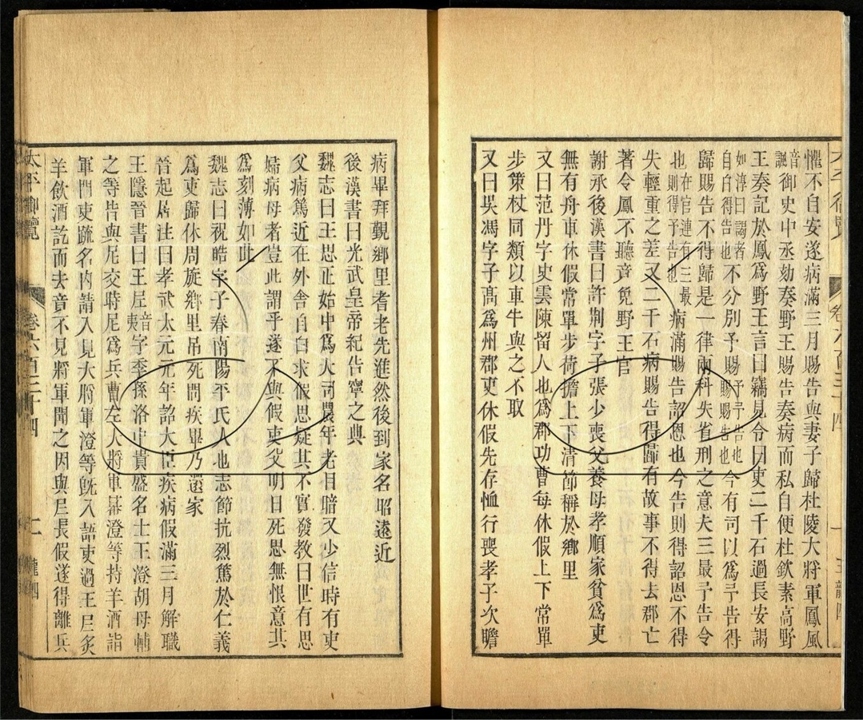 懼不自安遂病滿三月賜告與妻子歸杜陵大將軍鳳風
音諷御史中丞劾奏野王賜告奏病而私自便杜欽素高野
王奏記於鳳爲野王言曰竊見令曰吏二千石過長安謁
如淳曰謁者自白得告也不分別予賜予予告也賜賜告也今有司以爲予告得
歸賜告不得歸是一律兩科失省刑之意夫三最予告令
也在官連有三最則得予告也病滿賜告詔恩也今告則得詔恩不得
失輕重之差又二千石病賜告得歸有故事不得去郡亡
著令鳳不聽竟免野王官
謝承後漢書曰許荆字子張少喪父養母孝順家貧爲吏
無有舟車休假常單步荷擔上下清節稱於鄉里
又曰范丹字史雲陳留人也爲郡功曹每休假上下常單
步策杖同類以車牛與之不取
又曰吳馮字子髙爲州郡吏休假先存恤行喪孝子次瞻
病畢拜覲鄉里耆老先進然後到家名昭遠近
後漢書曰光武皇帝紀告寧之典
魏志曰王思正始中爲大司農年老目瞑又少信時有吏
父病篤近在外舍自白求假思疑其不實發教曰世有思
婦病母者豈此謂乎遂不與假吏父明日死思無恨意其
爲刻薄如此
魏志曰祝皓字子春南陽平氏人也志節抗烈篤於仁義
爲吏歸休周旋鄉里吊死問疾畢乃還家
晉起居注曰孝武太元元年詔大臣疾病假滿三月解職
王隱晉書曰王尼音夷字季孫洛中貴盛名士王澄胡母輔
之等告與尼交時尼爲兵曹左人將軍幕澄等持羊酒詣
軍門吏疏名內請入見大將軍澄等旣入語吏過王尼炙
羊飲酒訖而去竟不見將軍聞之因與尼長假遂得離兵
太平御覽
卷六百三十四